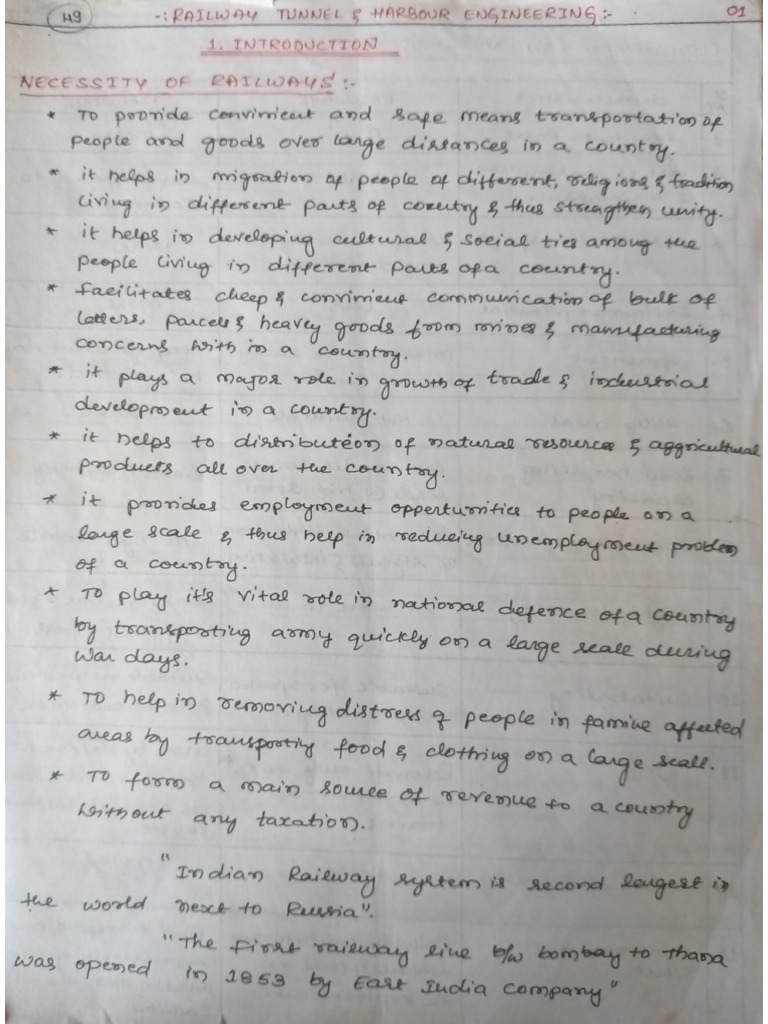 49 -: RAILWAY TUNNEL & HARBOUR ENGINEERING:- 01
1. INTRODUCTION
NECESSITY OF RAILWAYS:-
* To provide convinient and safe means transportation of
people and goods over large distances in a country.
* it helps in migration of people of different, religions & tradition
living in different parts of country & thus strengthen unity.
* it helps in developing cultural & social ties among the
people living in different parts of a country.
* facilitates cheep & convinient communication of bulk of
letters, parcels & heavey goods from mines & manufacturing
concerns with in a country.
* it plays a major role in growth of trade & industrial
development in a country.
* it helps to distribution of natural resource & aggricultural
products all over the country.
* it provides employment oppertunities to people on a
large scale & thus help in reducing unemployment problem
of a country.
* To play it's vital role in national defence of a country
by transporting army quickly on a large scale during
war days.
* To help in removing distress of people in famine affected
areas by transporting food & clothing on a large scale.
* To form a main source of revenue to a country
without any taxation.
"Indian Railway system is second largest in
the world next to Russia".
"The first railway line b/w bombay to thana
was opened in 1853 by East India company"